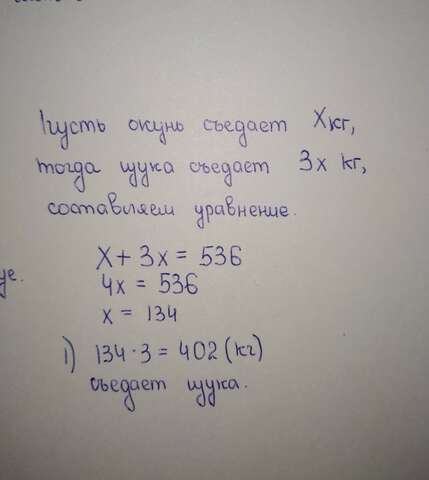 Пусть окунь съедает Xкг,
тогда щука съедает 3x кг,
составляем уравнение.
x + 3x = 536
4x = 536
x = 134
1) 134 · 3 = 402 (кг)
съедает щука.